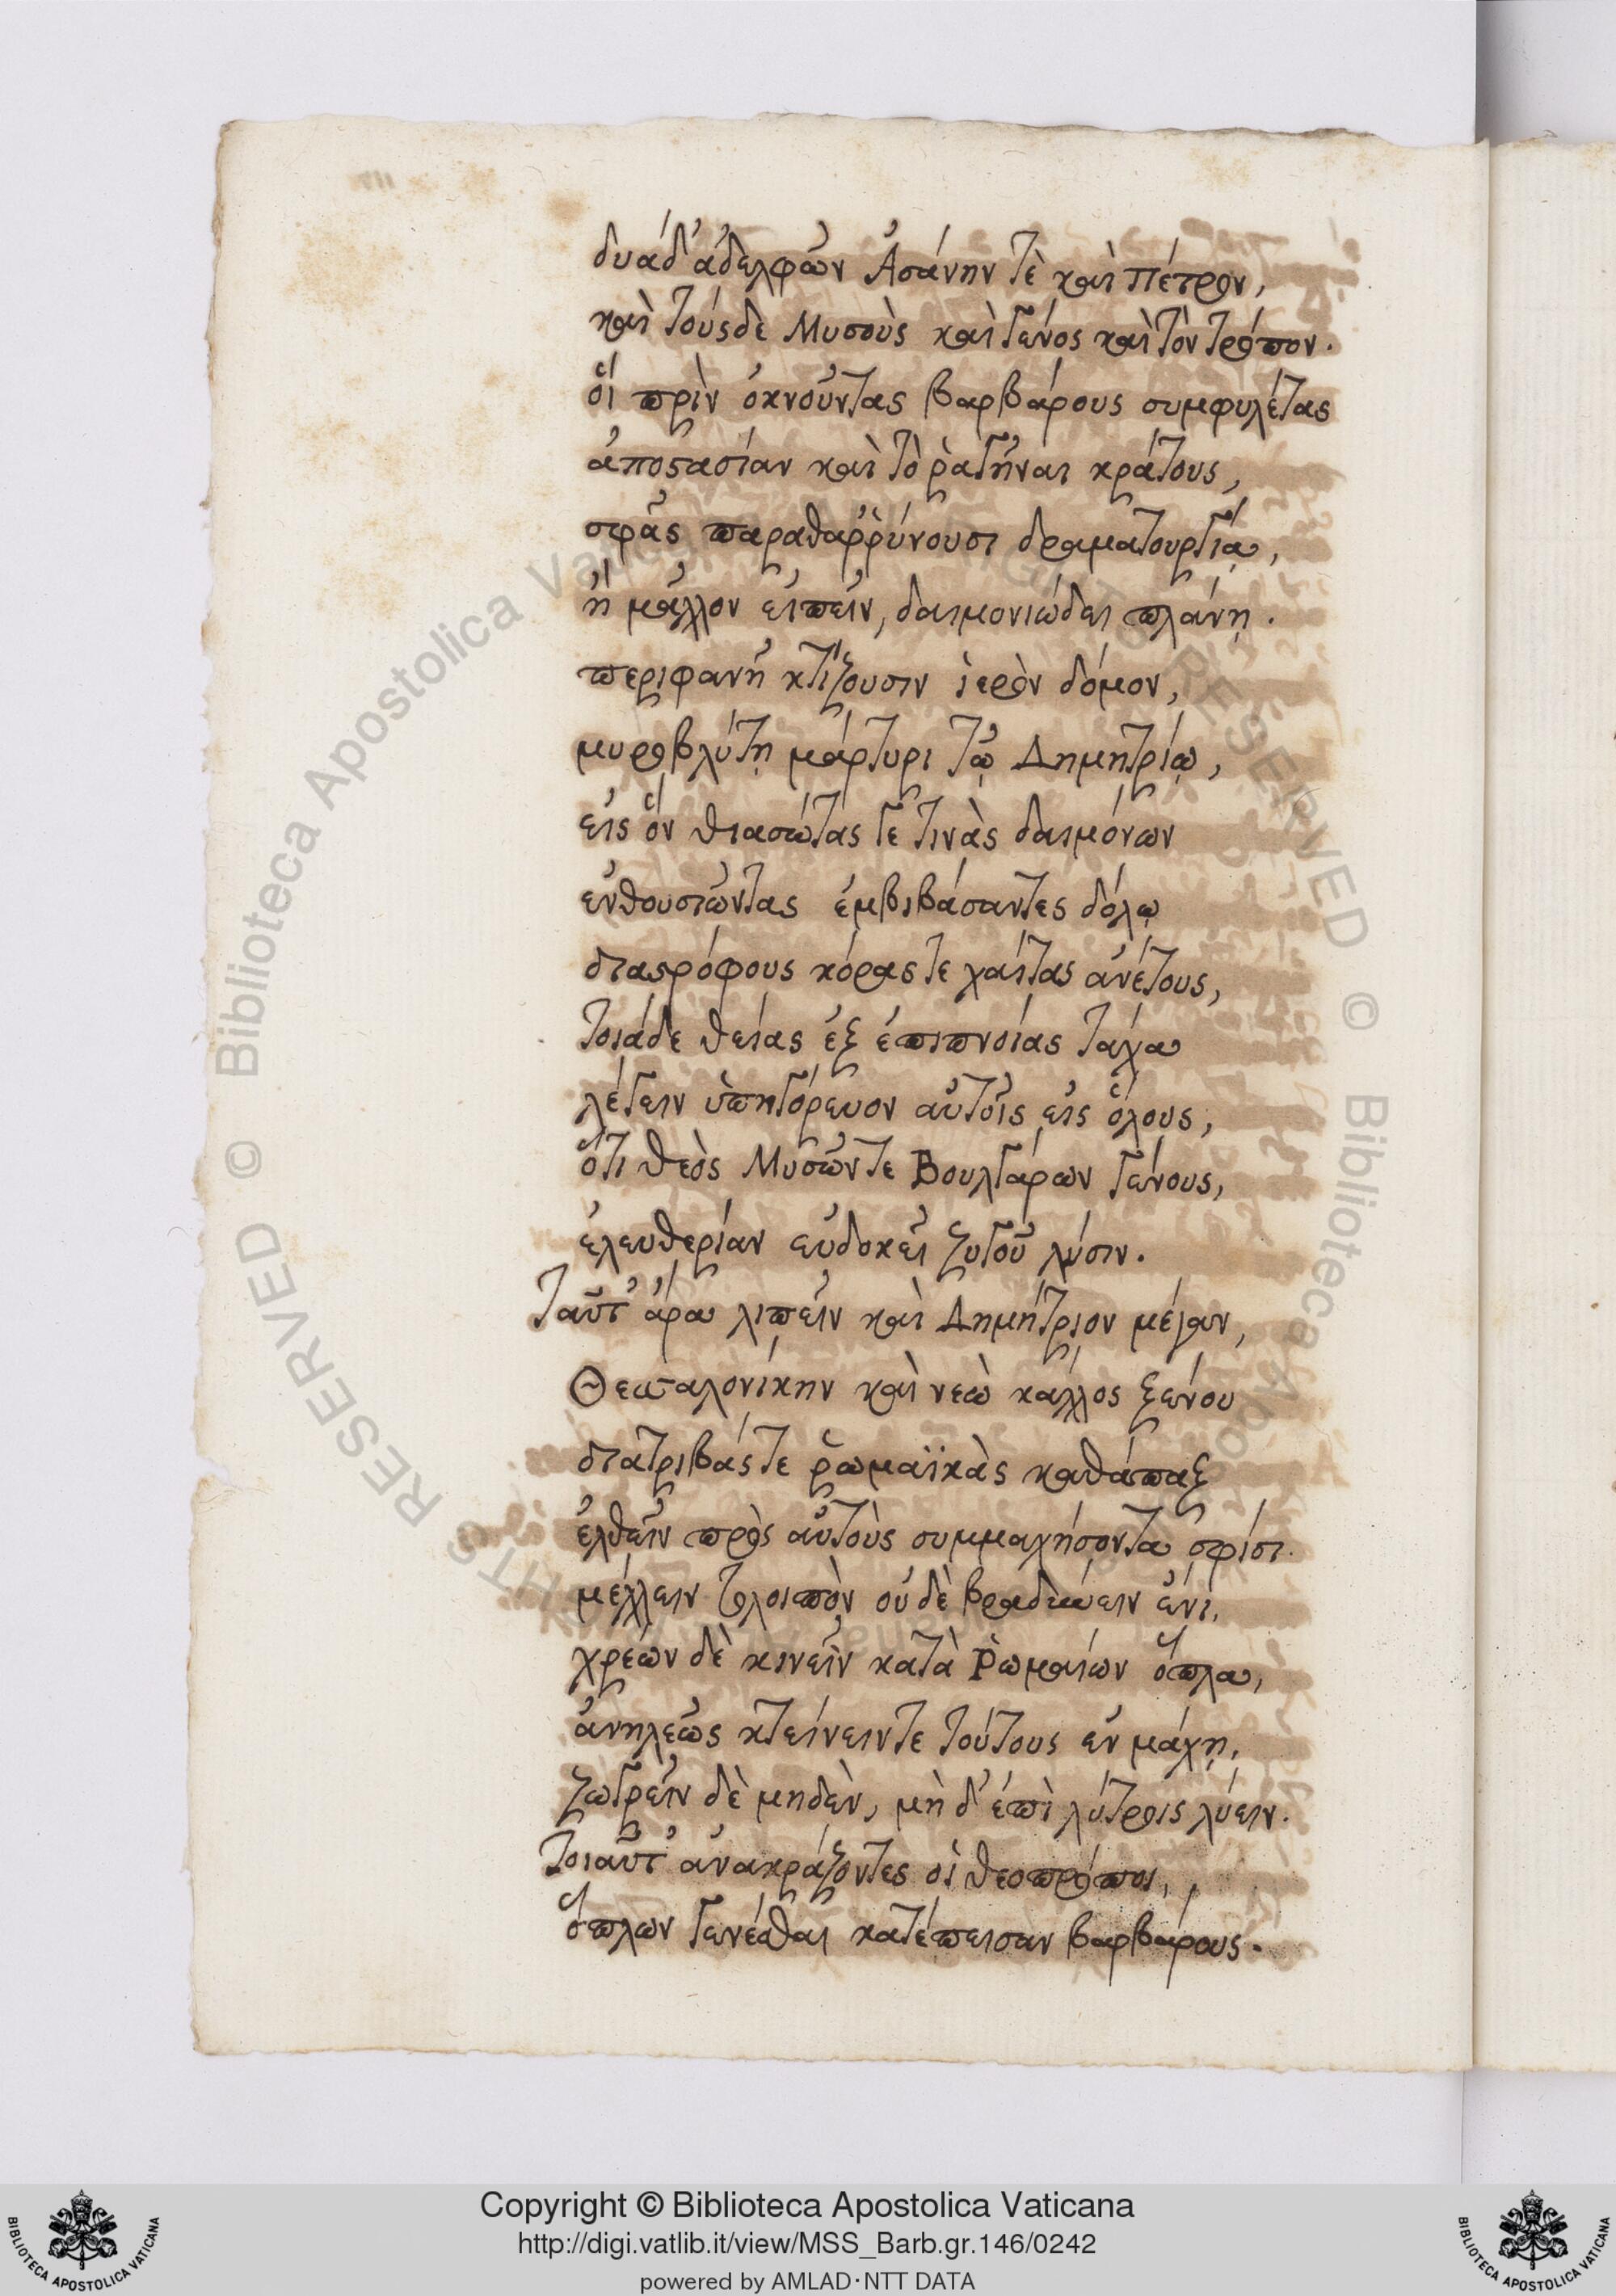 δυάδ' ἀδελφῶν Ἀσάνην τὲ καὶ Πέτρον,
καὶ τούσδε Μυσοὺς καὶ γένος καὶ τὸν τρόπον.
οἳ πρὶν ὀκνοῦντας βαρβάρους συμφυλέτας
ἀποστασίαν καὶ τὸ ῥαγῆναι κράτους,
σφᾶς παραθαῤῥύνουσι δραματουργίᾳ,
ἢ μᾶλλον εἰπεῖν, δαιμονιώδει πλάνῃ.
περιφανῆ κτίζουσιν ἱερὸν δόμον,
μυροβλύτῃ μάρτυρι τῷ Δημητρίῳ,
εἰς ὃν θιασώτας γε τινὰς δαιμόνων
ἐνθουσιῶντας ἐμβιβάσαντες δόλῳ
διαστρόφους κόρας τε χαίτας ἀνέτους,
τοιάδε θείας ἐξ ἐπιπνοίας τάχα
λέγειν ὑπηγόρευον αὐτοῖς εἰς ὅλους,
ὅτι θεὸς Μυσῶν τε Βουλγάρων γένους,
ἐλευθερίαν εὐδοκεῖ ζυγοῦ λύσιν.
Ταῦτ' ἄρα λιπεῖν καὶ Δημήτριον μέγαν,
Θεσσαλονίκην καὶ νεὼ κάλλος ξένου
διατριβάς τε ῥωμαϊκὰς καθάπαξ
ἐλθεῖν πρὸς αὐτοὺς συμμαχήσοντα σφίσι.
μέλλειν τολοιπὸν οὐδὲ βραδύνειν ἔνι,
χρεὼν δὲ κινεῖν κατὰ Ῥωμαίων ὅπλα,
ἀνηλεῶς κτείνειν τε τούτους ἐν μάχῃ,
ζωγρεῖν δὲ μηδὲν, μὴ δ' ἐπὶ λύτροις λύειν.
Τοιαῦτ' ἀνακράζοντες οἱ θεοπρόποι,
ὅπλων γενέσθαι κατέπεισαν βαρβάρους.
Copyright © Biblioteca Apostolica Vaticana
http://digi.vatlib.it/view/MSS_Barb.gr.146/0242
powered by AMLAD·NTT DATA